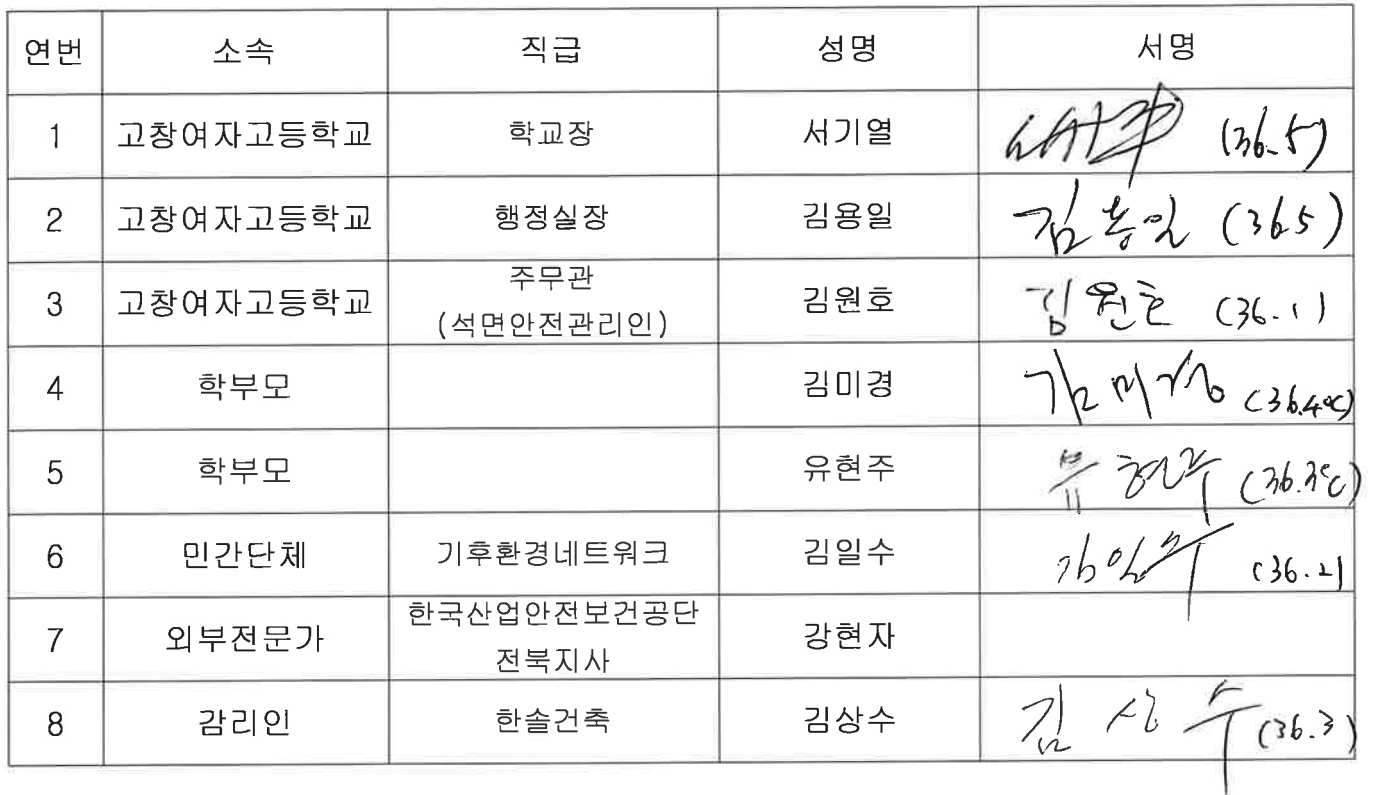 연번 소속 직급 성명 서명
1 고창여자고등학교 학교장 서기열 (36.5)
2 고창여자고등학교 행정실장 김용일 김용일 (36.5)
3 고창여자고등학교 주무관 (석면안전관리인) 김원호 김원호 (36.1)
4 학부모 김미경 김미경 (36.4℃)
5 학부모 유현주 유현주 (36.3℃)
6 민간단체 기후환경네트워크 김일수 김일수 (36.2)
7 외부전문가 한국산업안전보건공단 전북지사 강현자
8 감리인 한솔건축 김상수 김상수 (36.3)